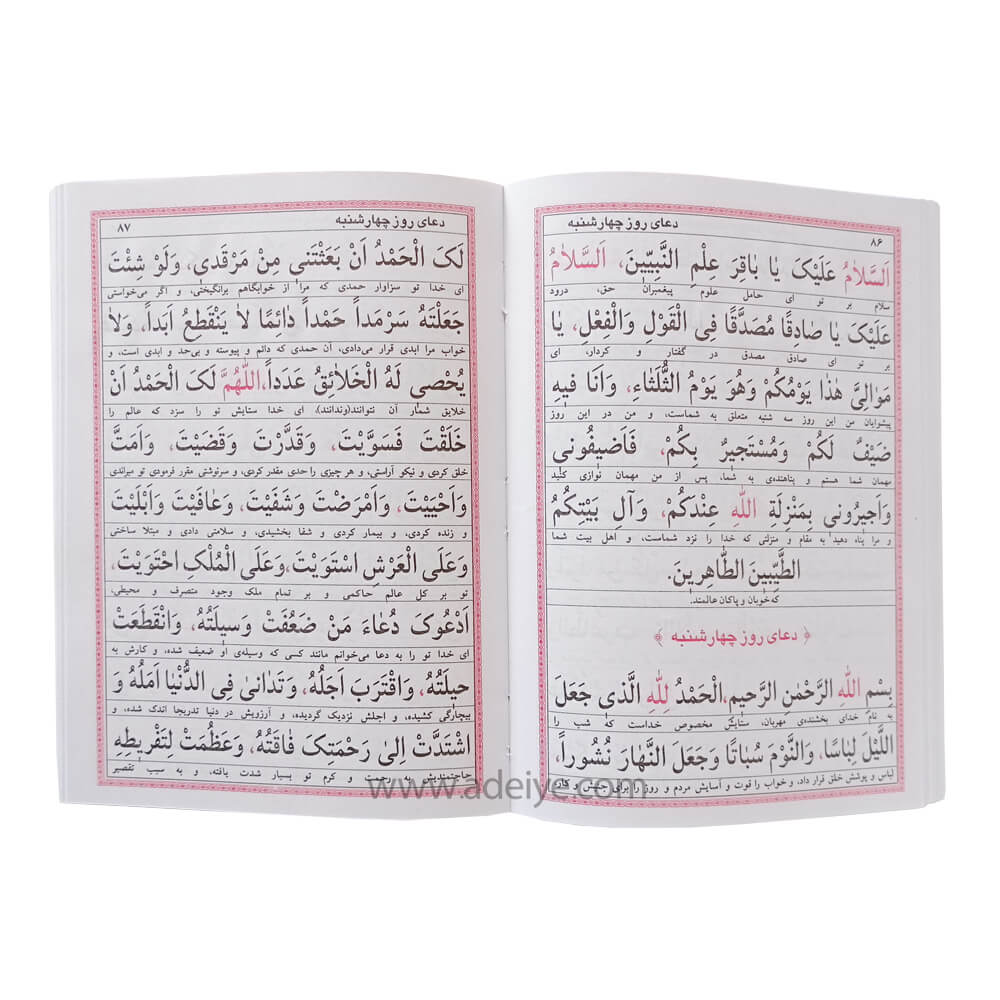 ۸۶
دعای روز چهارشنبه
اَلسَّلاٰمُ عَلَیْکَ یٰا بٰاقِرَ عِلْمِ النَّبِیّینَ، اَلسَّلاٰمُ
سلام بر تو ای حامل علوم پیغمبران حق، درود
عَلَیْکَ یٰا صٰادِقًا مُصَدَّقًا فِی الْقَوْلِ وَالْفِعْلِ، یٰا
بر تو ای صادق مصدق در گفتار و کردار، ای
مَوٰالِیَّ هٰذٰا یَوْمُکُمْ وَهُوَ یَوْمُ الثُّلَثٰاءِ، وَاَنَا فیهِ
پیشوایان من این روز سه شنبه متعلق به شماست، و من در این روز
ضَیْفٌ لَکُمْ وَمُسْتَجیرٌ بِکُمْ، فَاَضیفُونی
مهمان شما هستم و پناهنده‌ی به شما، پس از من مهمان نوازی کنید
وَاَجیرُونی بِمَنْزِلَةِ اللّٰهِ عِنْدَکُمْ، وَآلِ بَیْتِکُمُ
و مرا پناه دهید به مقام و منزلتی که خدا را نزد شماست، و اهل بیت شما
الطَّیِّبینَ الطّٰاهِرینَ.
که خوبان و پاکان عالمند.
﴿ دعای روز چهارشنبه ﴾
بِسْمِ اللّٰهِ الرَّحْمٰنِ الرَّحیمِ،اَلْحَمْدُ لِلّٰهِ الَّذی جَعَلَ
به نام خدای بخشنده‌ی مهربان، ستایش مخصوص خداست که شب را
اللَّیْلَ لِبٰاسًا، وَالنَّوْمَ سُبٰاتًا وَجَعَلَ النَّهٰارَ نُشُوراً،
لباس و پوشش خلق قرار داد، و خواب را قوت و آسایش مردم و روز را برای جنبش و کار،
دعای روز چهارشنبه
۸۷
لَکَ الْحَمْدُ اَنْ بَعَثْتَنی مِنْ مَرْقَدی، وَلَوْ شِئْتَ
ای خدا تو سزاوار حمدی که مرا از خوابگاهم برانگیختی، و اگر می‌خواستی
جَعَلْتَهُ سَرْمَداً حَمْداً دٰائِمًا لاٰ یَنْقَطِعُ اَبَداً، وَلاٰ
خواب مرا ابدی قرار می‌دادی، آن حمدی که دائم و پیوسته و بی‌حد و ابدی است، و
یُحْصی لَهُ الْخَلاٰئِقُ عَدَداً،اَللّٰهُمَّ لَکَ الْحَمْدُ اَنْ
خلایق شمار آن نتوانند(وندانند)، ای خدا ستایش تو را سزد که عالم را
خَلَقْتَ فَسَوَّیْتَ، وَقَدَّرْتَ وَقَضَیْتَ، وَاَمَتَّ
خلق کردی و نیکو آراستی، و هر چیزی را حدی مقدر کردی، و سرنوشتی مقرر فرمودی تو میراندی
وَاَحْیَیْتَ، وَاَمْرَضْتَ وَشَفَیْتَ، وَعٰافَیْتَ وَاَبْلَیْتَ
و زنده کردی، و بیمار کردی و شفا بخشیدی، و سلامتی دادی و مبتلا ساختی
وَعَلَی الْعَرْشِ اسْتَوَیْتَ،وَعَلَی الْمُلْکِ احْتَوَیْتَ،
تو بر کل عالم حاکمی و بر تمام ملک وجود متصرف و محیطی،
اَدْعُوکَ دُعٰاءَ مَنْ ضَعُفَتْ وَسیلَتُهُ، وَانْقَطَعَتْ
ای خدا تو را به دعا می‌خوانم مانند کسی که وسیله‌ی او ضعیف شده، و کارش به
حیلَتُهُ، وَاقْتَرَبَ اَجَلُهُ، وَتَدٰانیٰ فِی الدُّنْیٰا اَمَلُهُ وَ
بیچارگی کشیده، و اجلش نزدیک گردیده، و آرزویش در دنیا تدریجا اندک شده، و
اشْتَدَّتْ اِلیٰ رَحْمَتِکَ فٰاقَتُهُ، وَعَظُمَتْ لِتَفْریطِهِ
حاجتمندیش به رحمت و کرم تو بسیار شدت یافته، و به سبب تقصیر
www.adeiye.com